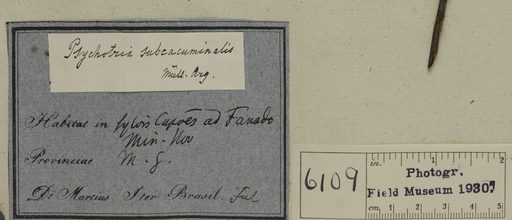 Psychotria subcacuminalis
Müll. Arg.
Habitat in sylvis Capoës ad Fanado
Min-Nov
Provinciae M. G.
Dr Martius Iter Brasil. Jul
6109
in. 1 2
Photogr.
Field Museum 1930.
cm. 1 2 3 4 5